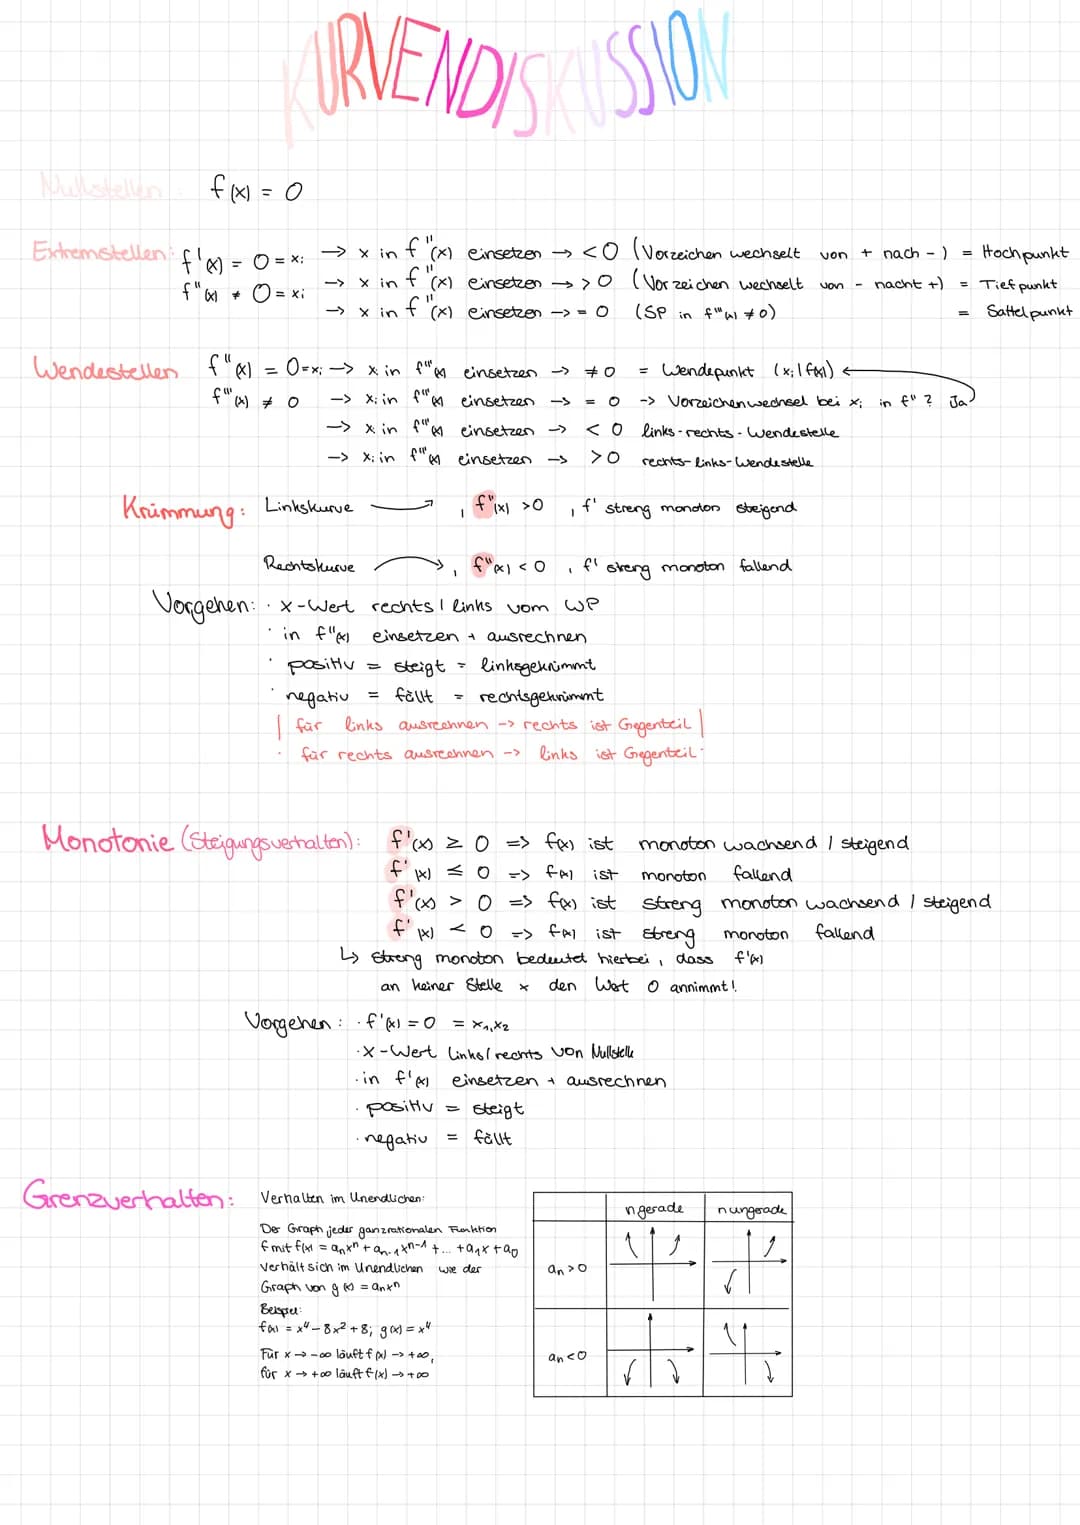 KURVENDISKUSSION
Nullstellen: f(x) = 0
Extremstellen: f'(x) = 0 = xᵢ → x in f''(x) einsetzen → <0 (Vorzeichen wechselt von + nach -) = Hochpunkt
f''(x) ≠ 0 = xᵢ → x in f''(x) einsetzen → >0 (Vorzeichen wechselt von - nacht +) = Tiefpunkt
→ x in f''(x) einsetzen → = 0 (SP in f'''(x) ≠ 0) = Sattelpunkt
Wendestellen f''(x) = 0 = xᵢ → xᵢ in f'''(x) einsetzen → ≠ 0 = Wendepunkt (xᵢ | f(x)) ←
f'''(x) ≠ 0 → xᵢ in f'''(x) einsetzen → = 0 → Vorzeichenwechsel bei xᵢ in f'' ? Ja
→ xᵢ in f'''(x) einsetzen → < 0 links-rechts-Wendestelle
→ xᵢ in f'''(x) einsetzen → > 0 rechts-links-Wendestelle
Krümmung: Linkskurve , f''(x) > 0 , f' streng monoton steigend
Rechtskurve , f''(x) < 0 , f' streng monoton fallend
Vorgehen: · x-Wert rechts / links vom WP
· in f''(x) einsetzen + ausrechnen
· positiv = steigt = linksgekrümmt
· negativ = fällt = rechtsgekrümmt
| für links ausrechnen -> rechts ist Gegenteil |
· für rechts ausrechnen -> links ist Gegenteil ·
Monotonie (Steigungsverhalten): f'(x) ≥ 0 => f(x) ist monoton wachsend / steigend
f'(x) ≤ 0 => f(x) ist monoton fallend
f'(x) > 0 => f(x) ist streng monoton wachsend / steigend
f'(x) < 0 => f(x) ist streng monoton fallend
↳ streng monoton bedeutet hierbei, dass f'(x)
an keiner Stelle x den Wert 0 annimmt!
Vorgehen: · f'(x) = 0 = x₁,x₂
· x-Wert links/rechts von Nullstelle
· in f'(x) einsetzen + ausrechnen
· positiv = steigt
· negativ = fällt
Grenzverhalten: Verhalten im Unendlichen:
Der Graph jeder ganzrationalen Funktion
f mit f(x) = aₙxⁿ + aₙ₋₁xⁿ⁻¹ + ... + a₁x + a₀
verhält sich im Unendlichen wie der
Graph von g(x) = aₙxⁿ
Beispiel:
f(x) = x⁴ - 8x² + 8; g(x) = x⁴
Für x → -∞ läuft f(x) → +∞,
für x → +∞ läuft f(x) → +∞
n gerade n ungerade
aₙ > 0
aₙ < 0